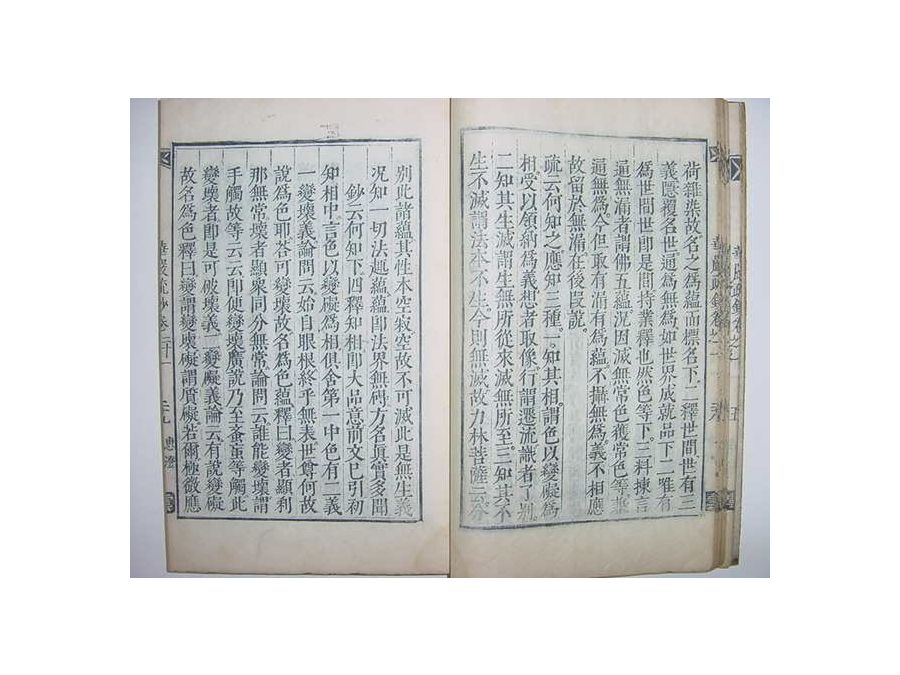 荷雜染故名之爲蘊而標名下二釋世間世有三
義隱覆名世通爲無爲如世界成就品下二唯有
爲世間世卽是間持業釋也然色等下二料揀言
通無漏者謂佛五蘊況因滅無常色獲常色等兼
通無爲今但取有漏有爲蘊不攝無爲義不相應
故留於無漏在後段說
疏云何知之應知三種一知其相謂色以變礙爲
相受以領納爲義想者取像行謂遷流識者了別
二知其生滅謂生無所從來滅無所至三知其不
生不滅謂法本不生今則無滅故力林菩薩云分
別此諸蘊其性本空寂空故不可滅此是無生義
况知一切法趣蘊蘊卽法界無礙方名眞實多聞
鈔云何知下四釋知相卽大品意前文巳引初
知相中言色以變礙爲相俱舍第一中色有二義
一變壞義論問云始自眼根終乎無表世尊何故
說爲色耶荅可變壞故名爲色蘊釋曰變者顯刹
那無常壞者顯衆同分無常論問云誰能變壞謂
手觸故等云云卽便變壞廣說乃至蚤蝱等觸此
變壞者卽是可破壞義二變礙義論云有說變礙
故名爲色釋曰變謂變礙礙謂質礙若爾極微應